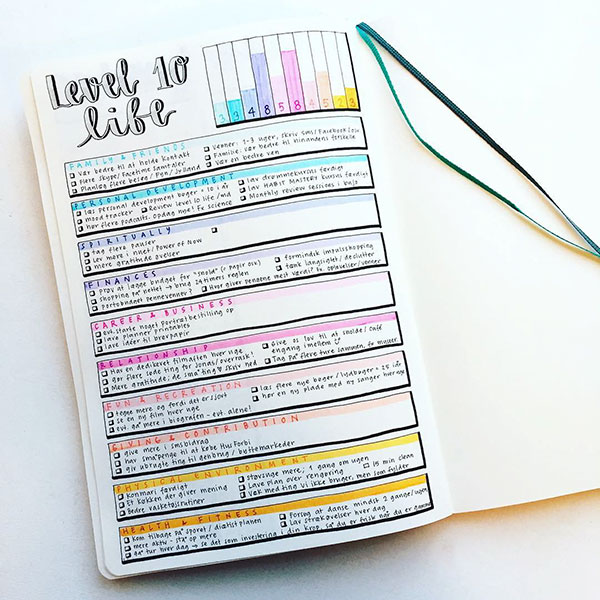 Level 10
life
3 3 4 8 5 8 4 5 2 3
FAMILY & FRIENDS
Vær bedre til at holde kontakt
Flere Skype/Facetime samtaler
Planlæg flere besøg / Fyn / Jylland
Venner: 1-3 uger, skriv sms/Facebook
Familie: vær bedre til hinandens
Vær en bedre ven
PERSONAL DEVELOPMENT
læs personal development bøger = 10 i år
mood tracker
Review level 10 life / md
hør flere podcasts. Opdag nye! Ex science
lav drømmekursus færdigt
Lav HABIT MASTERY kursus færdigt
Monthly review sessions i bujo
SPIRITUALLY
tag flere pauser
Lev mere i nuet / Power of Now
mere gratitude øvelser
FINANCES
prøv at lægge budget for "småld" (i papir osv)
shopping på nettet → brug 24 timers reglen
portobudget pennevenner?
formindsk impulsshopping
tænk langsigtet / declutter
Hvor giver pengene mest værdi? Ex. oplevelser/venner
CAREER & BUSINESS
evt. starte noget Portrætbestilling op
lave planner printables
lave idéer til brevpapir
RELATIONSHIP
Hav en dedikeret filmaften hver uge
Gør flere søde ting for Jonas / overrask!
Mere gratitude; de små ting ♡ skriv ned
Give os lov til at snolde / café
engang imellem
Tag på flere ture sammen, fx museer
FUN & RECREATION
tegne mere og færdi det er sjovt
se en ny film hver uge
evt. gå mere i biografen - evt. alene!
læs flere nye bøger / lydbøger = 25 i år
hør en ny plade med ny sanger hver uge
GIVING & CONTRIBUTION
give mere i småbidrag
hav småpenge til at købe Hus Forbi
giv ubrugte ting til genbrug / byttemarkeder
PHYSICAL ENVIRONMENT
Konmari færdigt
Et køkken der giver mening
Bedre vasketøjsrutiner
støvsuge mere; 1 gang om ugen
15 min clean
Lave plan over rengøring
Væk med ting vi ikke bruger, men som fylder
HEALTH & FITNESS
kom tilbage på sporet / diætist planen
mere aktiv - stå op mere
gå tur hver dag → se det som investering i din krop, så du er frisk når du er gammel
Forsøg at danse mindst 2 gange/ugen
Lav strækøvelser hver dag